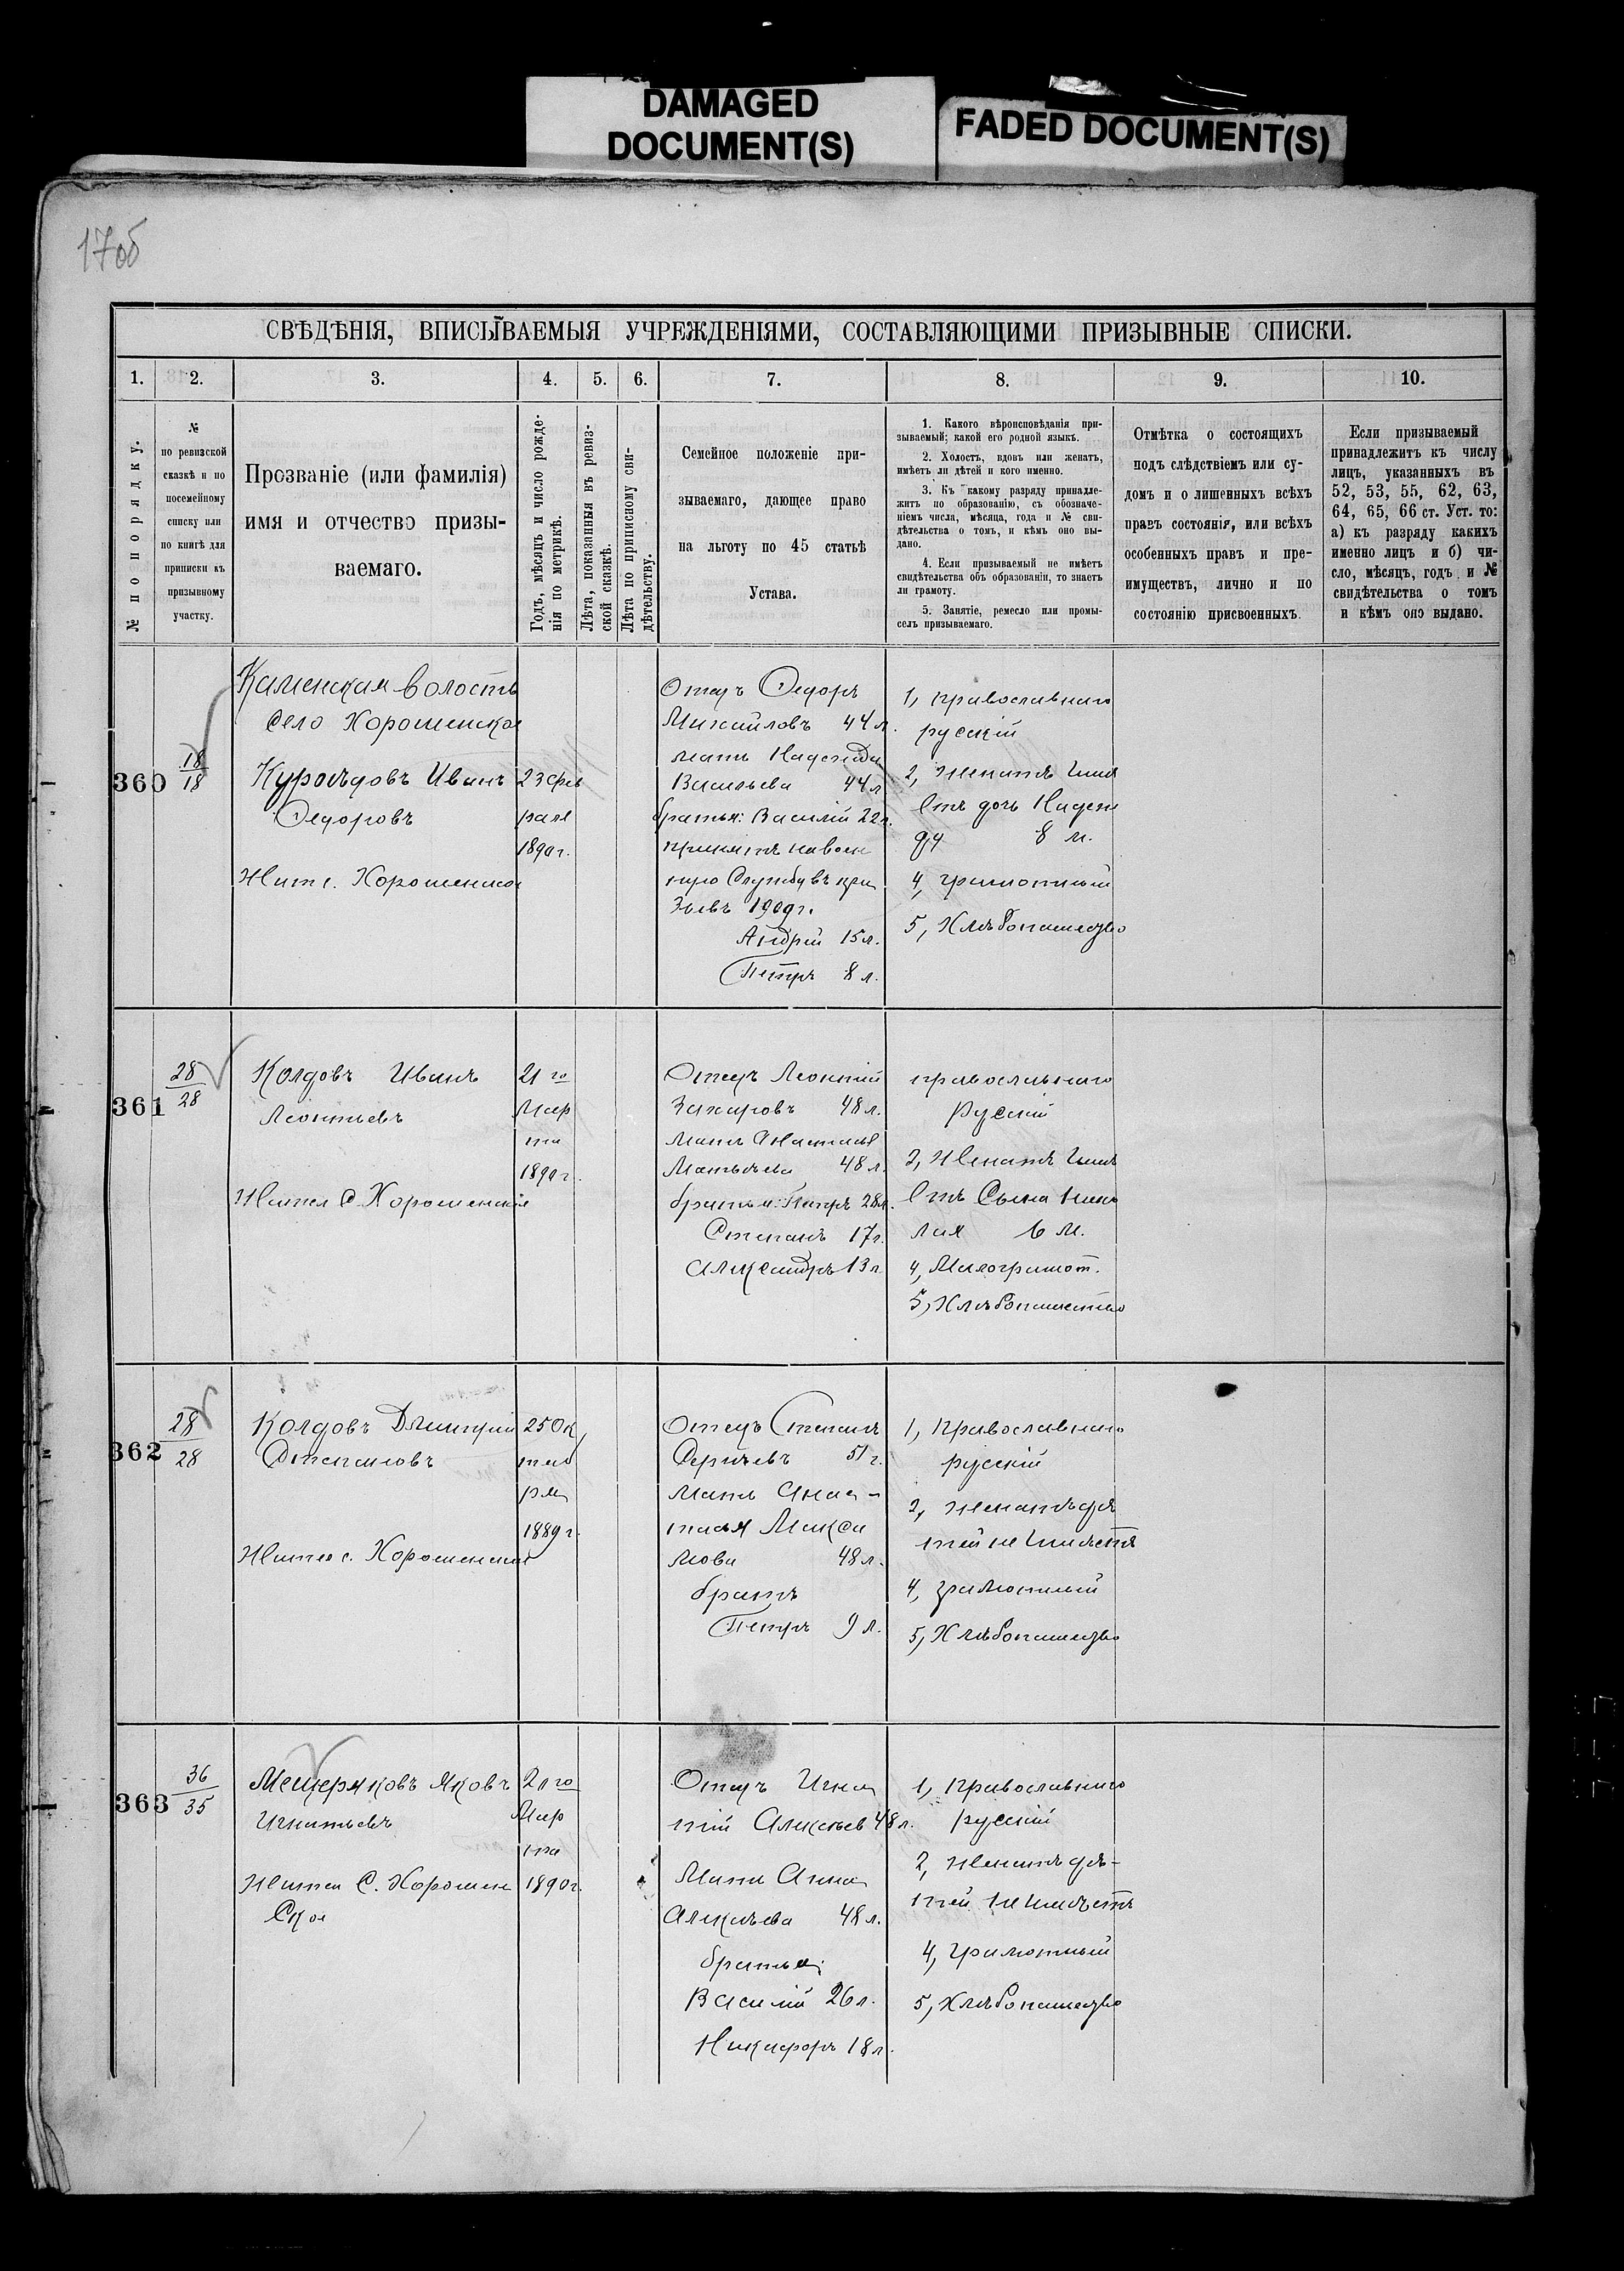 DAMAGED
DOCUMENT(S)
FADED DOCUMENT(S)
17об
СВѢДѢНІЯ, ВПИСЫВАЕМЫЯ УЧРЕЖДЕНІЯМИ, СОСТАВЛЯЮЩИМИ ПРИЗЫВНЫЕ СПИСКИ.
1. 2. 3. 4. 5. 6. 7. 8. 9. 10.
№ по порядку.
№
по ревизской
сказкѣ и по
посемейному
списку или
по книгѣ для
приписки къ
призывному
участку.
Прозваніе (или фамилія)
имя и отчество призы-
ваемаго.
Годъ, мѣсяцъ и число рожде-
нія по метрикѣ.
Лѣта, показанныя въ ревиз-
ской сказкѣ.
Лѣта по приписному сви-
дѣтельству.
Семейное положеніе при-
зываемаго, дающее право
на льготу по 45 статьѣ
Устава.
1. Какого вѣроисповѣданія при-
зываемый; какой его родной языкъ.
2. Холостъ, вдовъ или женатъ,
имѣетъ ли дѣтей и кого именно.
3. Къ какому разряду принадле-
житъ по образованію, съ обозначе-
ніемъ числа, мѣсяца, года и № сви-
дѣтельства о томъ, и кѣмъ оно вы-
дано.
4. Если призываемый не имѣетъ
свидѣтельства объ образованіи, то знаетъ
ли грамоту.
5. Занятіе, ремесло или промы-
селъ призываемаго.
Отмѣтка о состоящихъ
подъ слѣдствіемъ или су-
домъ и о лишенныхъ всѣхъ
правъ состоянія, или всѣхъ
особенныхъ правъ и пре-
имуществъ, лично и по
состоянію присвоенныхъ.
Если призываемый
принадлежитъ къ числу
лицъ, указанныхъ въ
52, 53, 55, 62, 63,
64, 65, 66 ст. Уст. то:
а) къ разряду какихъ
именно лицъ и б) чи-
сло, мѣсяцъ, годъ и №
свидѣтельства о томъ
и кѣмъ оно выдано.
Каменская волость
село Хорошенское
360
18
18
Куроѣдовъ Иванъ
Федоровъ
Жит с. Хорошенское
23 фев
раля
1890 г.
Отецъ Федоръ
Михайловъ 44 л.
мать Надежда
Васильева 44 л
братья: Василій 22 л.
принятъ на воен
ную службу въ при
зывъ 1909 г.
Андрей 15 л.
Петръ 8 л.
1, православнаго
русскій
2, женатъ имѣ
етъ дочь Надеж
ду 8 м.
4, грамотный
5, Хлѣбопашество
361
28
28
Колдовъ Иванъ
Леонтьевъ
Жител с. Хорошенское
21 го
Мар
та
1890 г.
Отецъ Леонтій
Захаровъ 48 л.
Мать Анастасія
Матвѣева 48 л.
братья: Петръ 28 л.
Степанъ 17 л.
Александръ 13 л
православнаго
Русскій
2, Женатъ имѣ
етъ сына Нико
лая 6 м.
4, Малограмот.
5, Хлѣбопашество
362
28
28
Колдовъ Дмитрій
Степановъ
Жител с. Хорошенское
25 Ок,
тяб
ря
1889 г.
Отецъ Степанъ
Сергѣевъ 51 г.
Мать Анас-
тасія Макси
мова 48 л.
братъ
Петръ 9 л.
1, Православнаго
русскій
2, женатъ дѣ
тей не имѣетъ
4, грамотный
5, Хлѣбопашество
363
36
35
Мещеряковъ Яковъ
Игнатьевъ
Жител С. Хорошен
Ское
21 го
Мар
та
1890 г.
Отецъ Игна
тій Алексѣев 48 л.
Мать Анна
Алексѣева 48 л.
братья:
Василій 26 л.
Никифоръ 18 л.
1, Православнаго
русскій
2, женатъ дѣ-
тей не имѣетъ
4, Грамотный
5, Хлѣбопашество